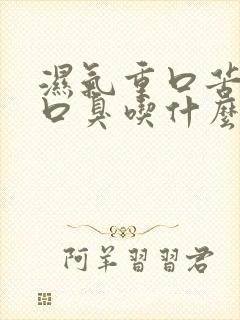 濕氣重口苦
口臭喫什麼
阿羊習習君